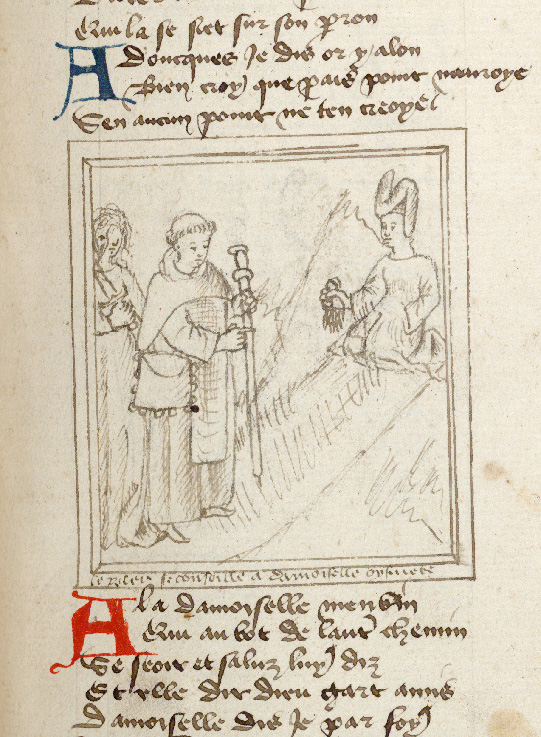 Qui la se siet sur son pron
Adoncques Je dis or y alon
Bien croy que pais point nauroye
Sen aucun point ne ten creoye
le pelerin se conseille a damoiselle oyseuse
A la damoiselle men vin
Qui au bot de lautre chemin
Se seoit et saluz luy diz
Et elle dit dieu gart amis
Damoiselle dis Je par foy